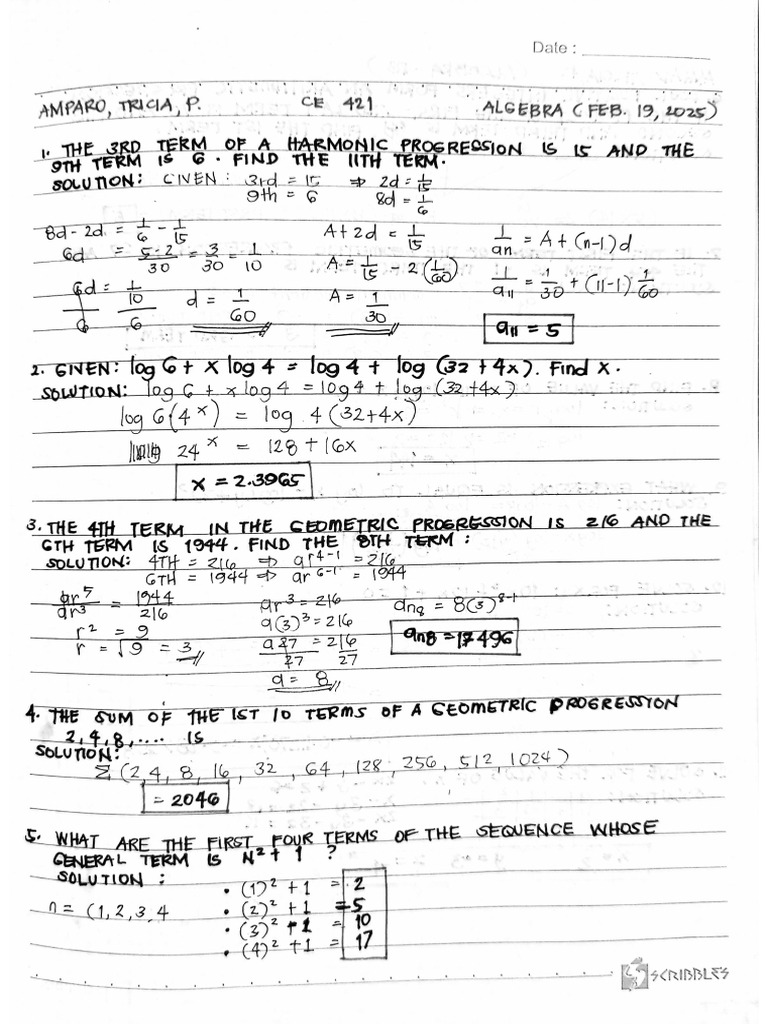 Date :
AMPARO, TRICIA, P. CE 421 ALGEBRA ( FEB. 19, 2025)
1. THE 3RD TERM OF A HARMONIC PROGRESSION IS 15 AND THE
9TH TERM IS 6. FIND THE 11TH TERM.
SOLUTION: GIVEN: 3rd = 15 ⇒ 2d = 1/15
9th = 6 8d = 1/6
8d - 2d = 1/6 - 1/15 A + 2d = 1/15 1/an = A + (n-1)d
6d = 5-2/30 = 3/30 = 1/10 A = 1/15 - 2(1/60) 1/a11 = 1/30 + (11-1) 1/60
6d/6 = 1/10/6 d = 1/60 A = 1/30 a11 = 5
2. GIVEN: log 6 + x log 4 = log 4 + log (32 + 4x). Find x.
SOLUTION: log 6 + x log 4 = log 4 + log (32 + 4x)
log 6(4^x) = log 4 (32+4x)
24^x = 128 + 16x
x = 2.3965
3. THE 4TH TERM IN THE GEOMETRIC PROGRESSION IS 216 AND THE
6TH TERM IS 1944. FIND THE 8TH TERM :
SOLUTION: 4TH = 216 ⇒ ar^4-1 = 216
6TH = 1944 ⇒ ar^6-1 = 1944
ar^5/ar^3 = 1944/216 ar^3 = 216 an8 = 8(3)^8-1
r^2 = 9 a(3)^3 = 216 an8 = 17496
r = √9 = 3 a27/27 = 216/27
a = 8
4. THE SUM OF THE 1ST 10 TERMS OF A GEOMETRIC PROGRESSION
2, 4, 8, .... IS
SOLUTION:
Σ (2, 4, 8, 16, 32, 64, 128, 256, 512, 1024)
= 2046
5. WHAT ARE THE FIRST FOUR TERMS OF THE SEQUENCE WHOSE
GENERAL TERM IS N^2 + 1 ?
SOLUTION :
• (1)^2 + 1 = 2
n = (1, 2, 3, 4 • (2)^2 + 1 = 5
• (3)^2 + 1 = 10
• (4)^2 + 1 = 17
SCRIBBLES